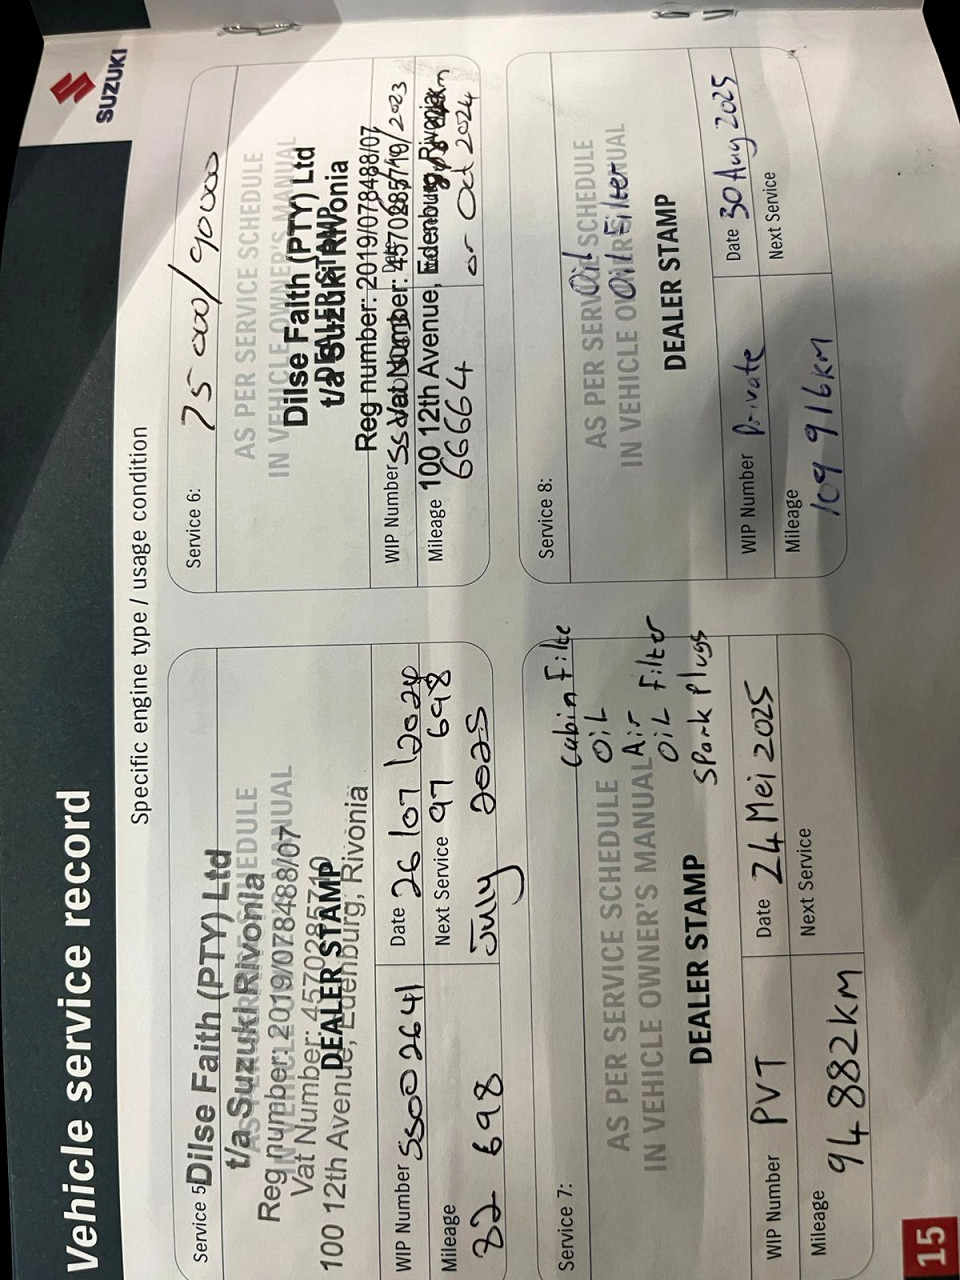 SUZUKI
Vehicle service record
Specific engine type / usage condition
Service 5:
Dilse Faith (PTY) Ltd
t/a Suzuki Rivonia
AS PER SERVICE SCHEDULE
IN VEHICLE OWNER'S MANUAL
Reg number: 2019/078488/07
Vat Number: 4570285710
DEALER STAMP
100 12th Avenue, Edenburg, Rivonia
WIP Number SS002641
Date 26/07/2024
Mileage 82 698
Next Service 97 698
July 2025
Service 6: 75 000/90000
AS PER SERVICE SCHEDULE
IN VEHICLE OWNER'S MANUAL
Dilse Faith (PTY) Ltd
DEALER STAMP
t/a Suzuki Rivonia
Reg number: 2019/078488/07
Vat Number: 4570285710
WIP Number
Date /2023
100 12th Avenue, Edenburg, Rivonia
Mileage 66664
or Oct 2024
Service 7:
Cabin Filte
OiL
AS PER SERVICE SCHEDULE
Air
IN VEHICLE OWNER'S MANUAL
OiL Filter
Spark Plugs
DEALER STAMP
WIP Number PVT
Date 24 Mei 2025
Mileage 94 882KM
Next Service
Service 8:
AS PER SERVICE SCHEDULE
Oil
IN VEHICLE OWNER'S MANUAL
Oil Filter
DEALER STAMP
WIP Number Private
Date 30 Aug 2025
Mileage 109 916KM
Next Service
15